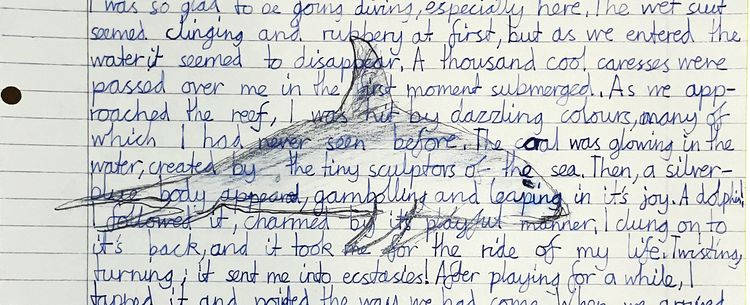 I was so glad to be going diving, especially here. The wet suit
seemed clinging and rubbery at first, but as we entered the
water, it seemed to disappear. A thousand cool caresses were
passed over me in the first moment submerged. As we app-
roached the reef, I was hit by dazzling colours, many of
which I had never seen before. The coral was glowing in the
water, created by the tiny sculptors of the sea. Then, a silver-
blue body appeared, gambolling and leaping in it's joy. A dolphin,
I followed it, charmed by its playful manner, I clung on to
it's back, and it took me for the ride of my life. Twisting,
turning; it sent me into ecstasies! After playing for a while, I
it and the way we had come. When we arrived